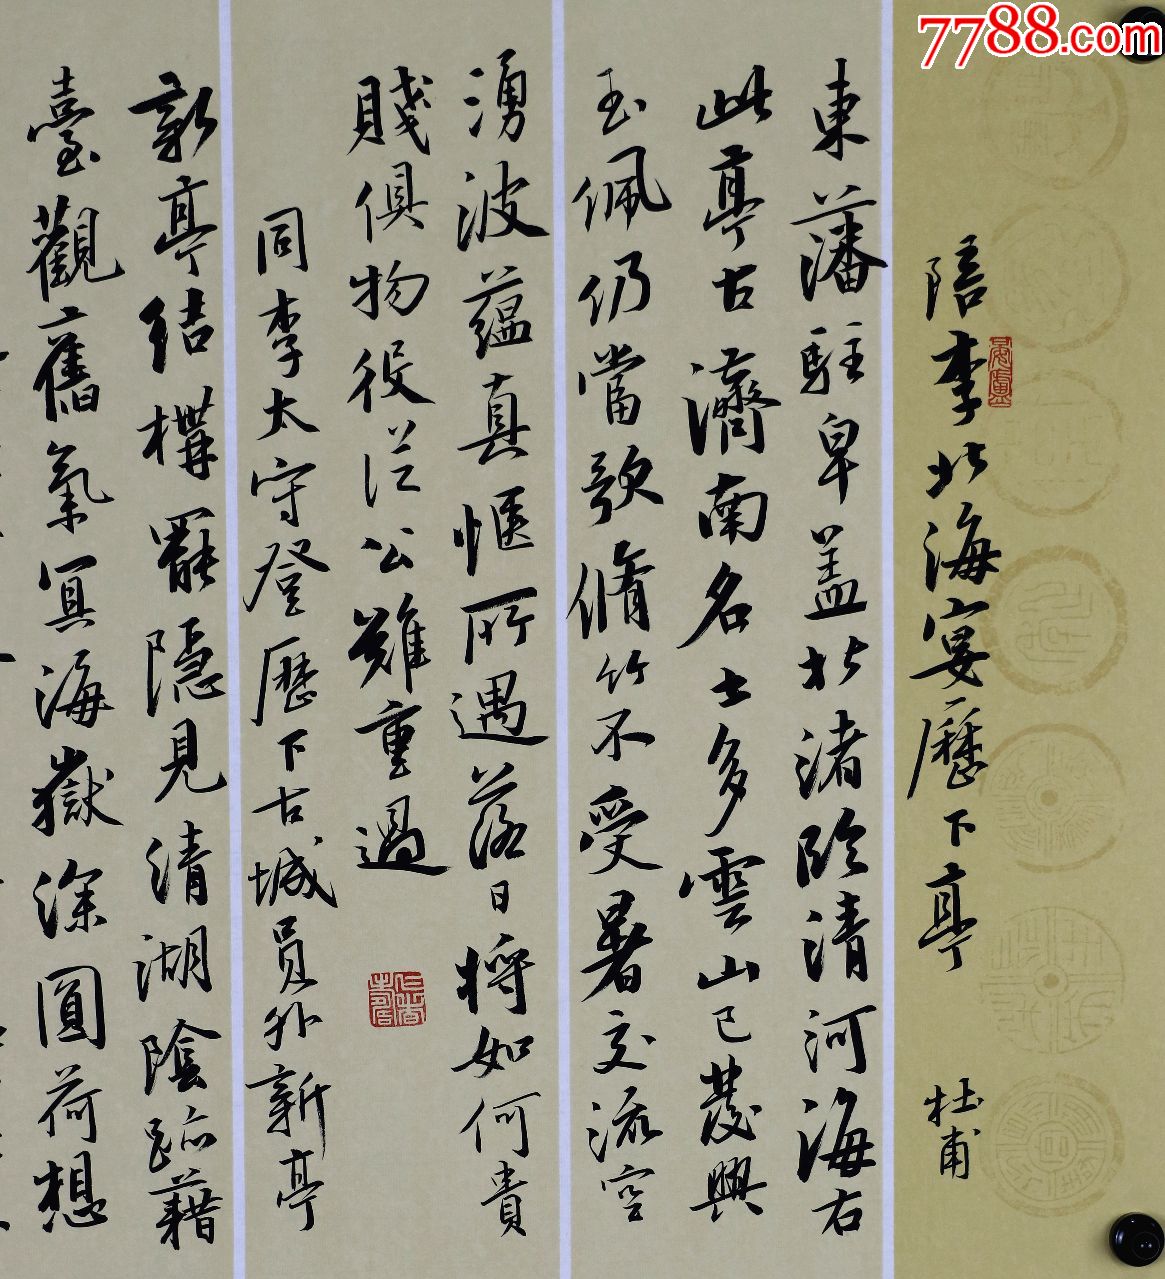 7788.com
陪李北海宴歷下亭 杜甫
東藩駐皁盖北渚臨清河海右
此亭古濟南名士多雲山已發興
玉佩仍當歌脩竹不受暑交流空
湧波蘊真愜所遇落日將如何貴
賤俱物役從公難重過
同李太守登歷下古城員外新亭
新亭結構罷隱見清湖陰跡藉
臺觀舊氣冥海嶽深圓荷想